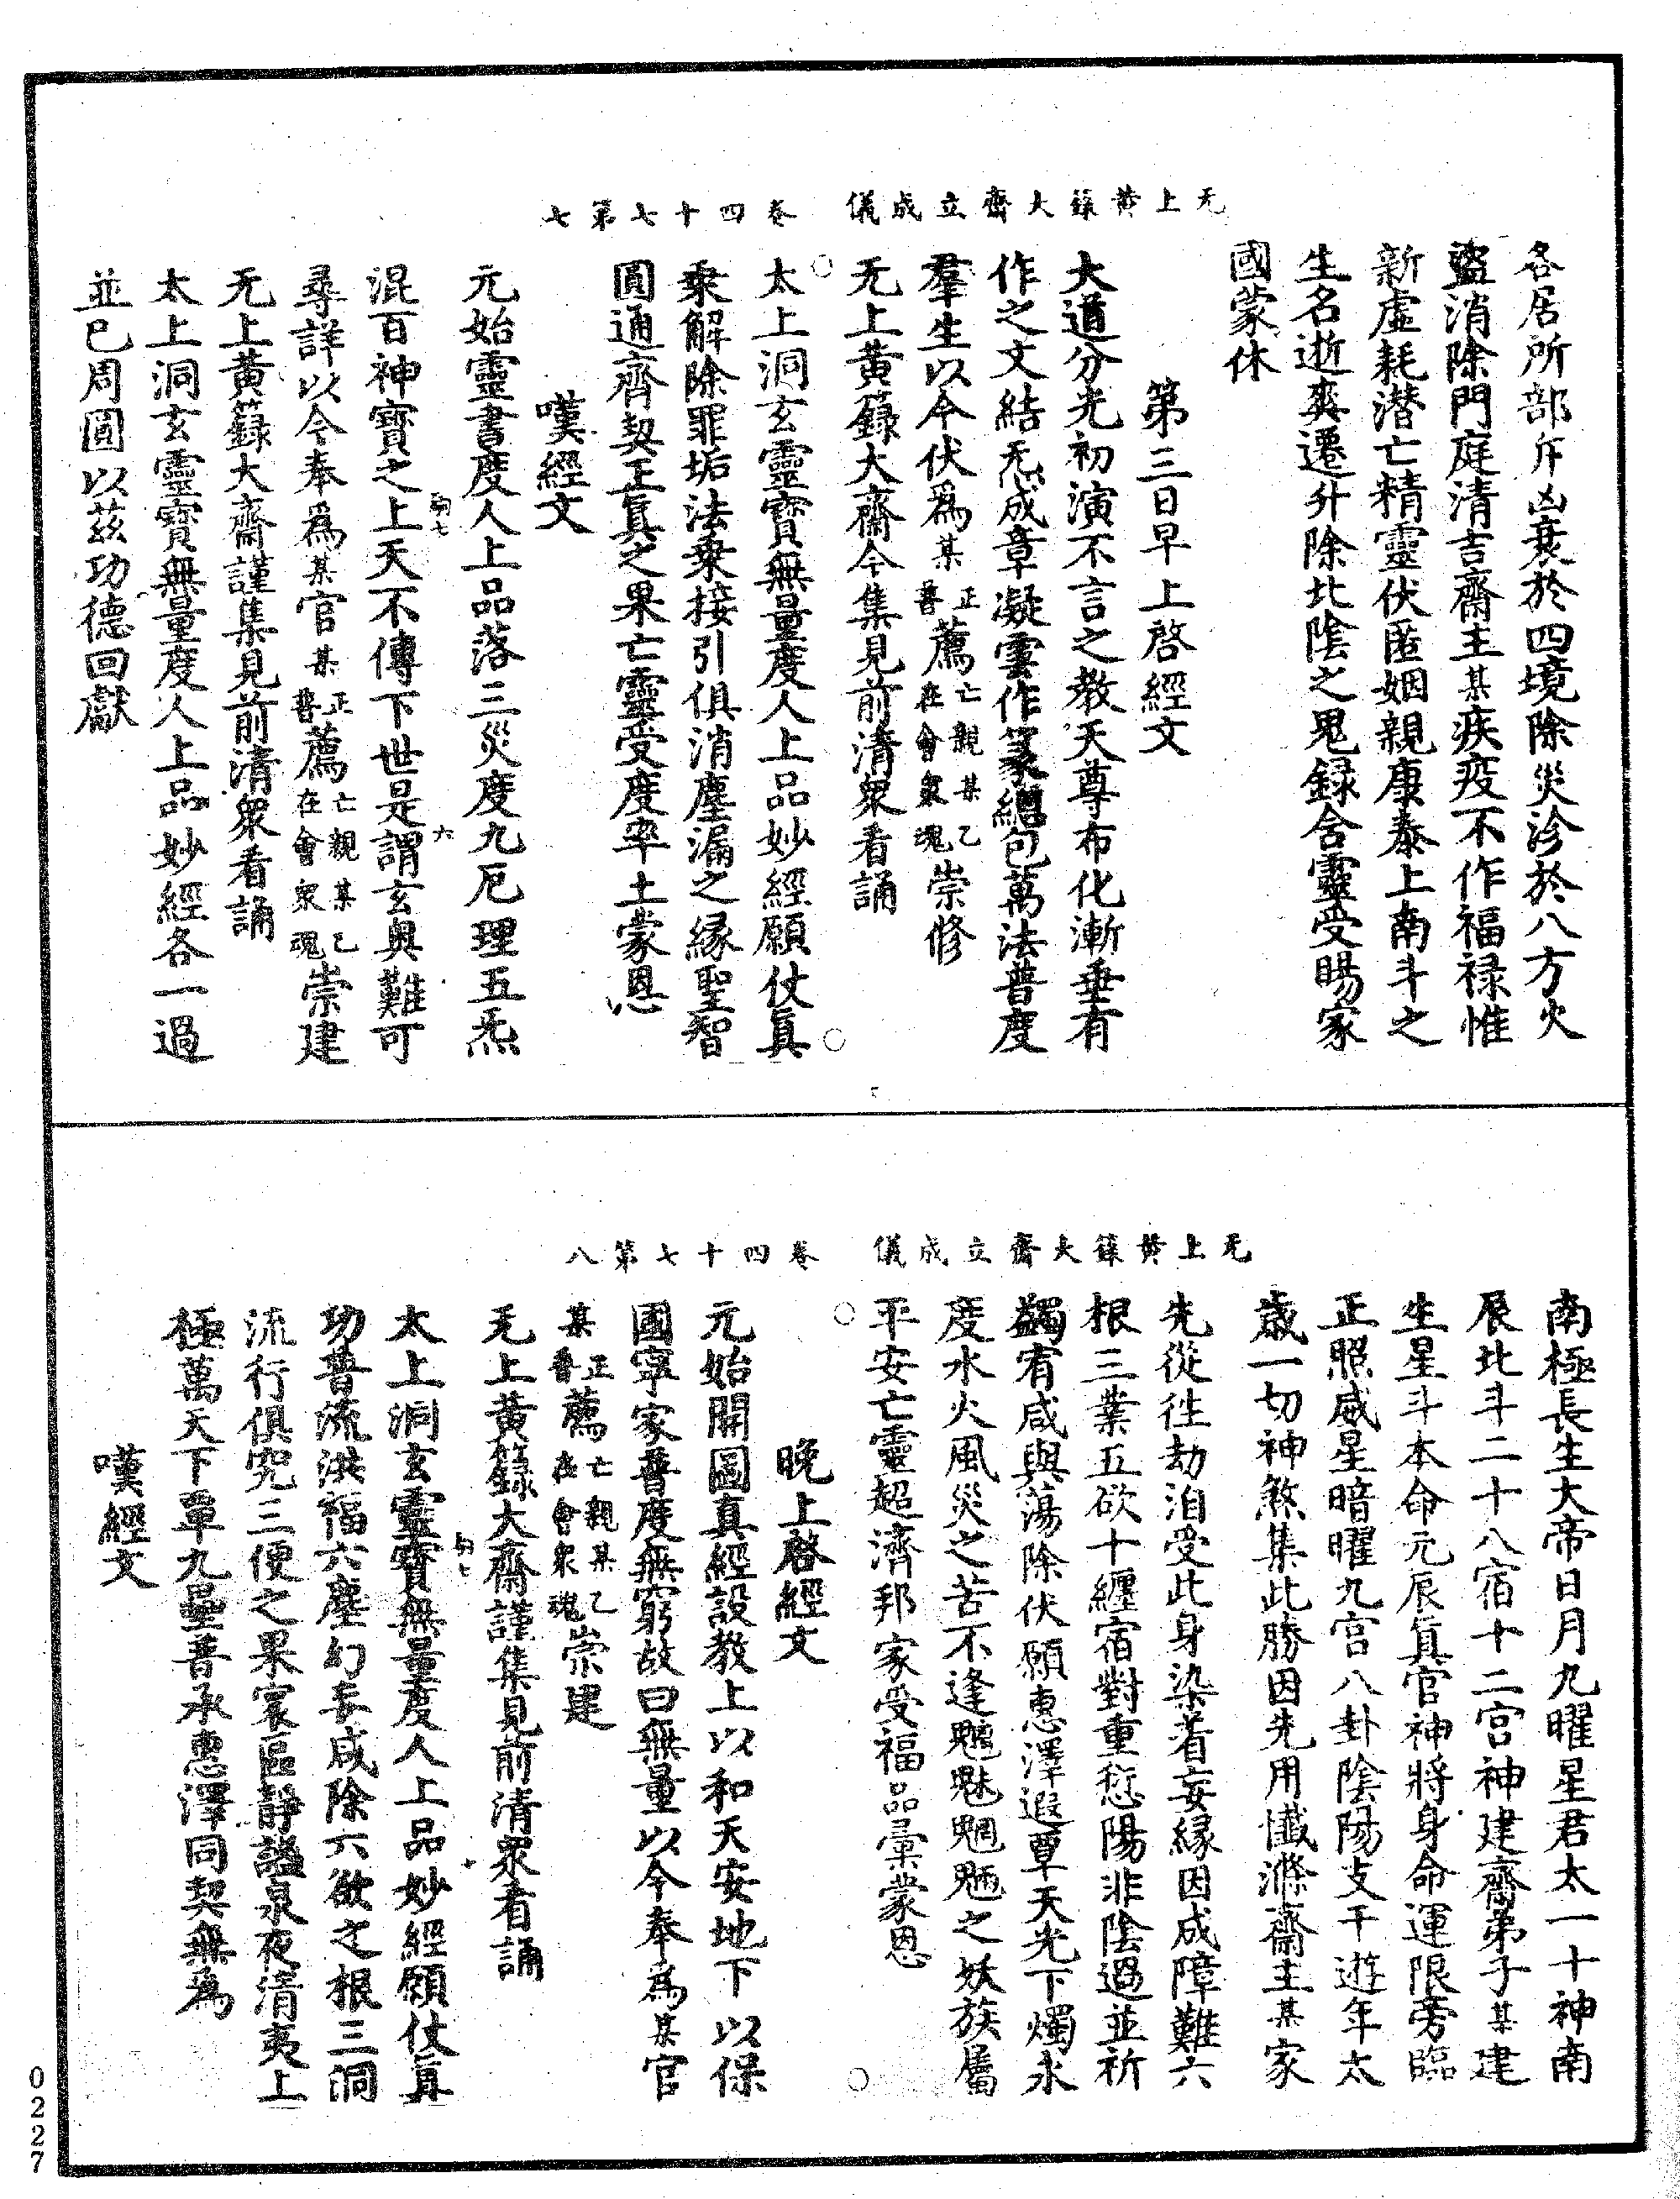 各居所部斥凶衰於四境除災沴於八方火
盜消除門庭清吉齋主某疾疫不作福祿惟
新虛耗潛亡精靈伏匿姻親康泰上南斗之
生名逝爽遷升除北陰之鬼錄含靈受賜家
國蒙休
第三日早上啓經文
大道分光初演不言之教天尊布化漸垂有
作之文結炁成章凝雲作篆總包萬法普度
羣生以今伏爲某正普薦亡親某乙在會衆魂崇修
无上黃籙大齋今集見前清衆看誦
太上洞玄靈寶無量度人上品妙經願仗眞
乘解除罪垢法乘接引俱消塵漏之緣聖智
圓通齊契正眞之果亡靈受度率土蒙恩
嘆經文
元始靈書度人上品落三災度九厄理五炁
混百神寶之上天不傳下世是謂玄奧難可
尋詳以今奉爲某官某正普薦亡親某乙在會衆魂崇建
无上黃籙大齋謹集見前清衆看誦
太上洞玄靈寶無量度人上品妙經各一過
並已周圓以茲功德回獻
无上黃籙大齋立成儀 卷四十七第七
南極長生大帝日月九曜星君太一十神南
辰北斗二十八宿十二宮神建齋弟子某建
生星斗本命元辰眞官神將身命運限旁臨
正照威星暗曜九宮八卦陰陽支干遊年太
歲一切神煞集此勝因先用懺滌齋主某家
先從往劫洎受此身染着妄緣因成障難六
根三業五欲十纏宿對重愆陽非陰過並祈
蠲宥咸與蕩除伏願惠澤遐覃天光下燭永
度水火風災之苦不逢魑魅魍魎之妖族屬
平安亡靈超濟邦家受福品彙蒙恩
晚上啓經文
元始開圖真經設教上以和天安地下以保
國寧家普度無窮故曰無量以今奉爲某官
某正普薦亡親某乙在會衆魂崇建
无上黃籙大齋謹集見前清衆看誦
太上洞玄靈寶無量度人上品妙經願仗眞
功普流洪福六塵幻妄咸除六欲之根三洞
流行俱究三便之果寰區靜謐泉夜清夷上
極萬天下覃九壘普承惠澤同契無爲
嘆經文
无上黃籙大齋立成儀 卷四十七第八
0227